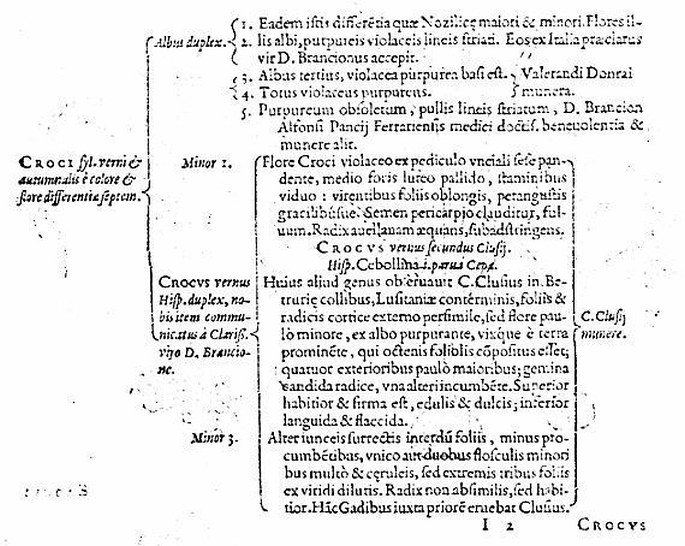 1. Eadem istis differētia quæ Nozilleæ maiori & minori. Flores il-
Albus duplex. 2. lis albi, purpureis violaceis lineis striati. Eos ex Italia præclarus
vir D. Brancionus accepit.
3. Albus tertius, violacea purpurea basi est. Valerandi Donrai
4. Totus violaceus purpurens. munera.
5. Purpureum obsoletum, pullis lineis striatum, D. Brancion
Alfonsi Pancij Ferrariensis medici doctis. beneuolentia &
munere alit.
CROCI syl. verni &
autumnalis è colore &
flore differentiæ septem.
Minor 1. Flore Croci violaceo ex pediculo vnciali sese pan-
dente, medio foris luteo pallido, staminibus
viduo : virentibus foliis oblongis, perangustis
gracilibúsue. Semen pericarpio clauditur, ful-
uum. Radix auellanam æquans, subadstringens.
CROCVS vernus secundus Clusij.
Hisp. Cebollina i. parua Cepa.
CROCVS vernus
Hisp. duplex, no-
bis item commu-
nicatus à Clariss.
viro D. Brancio-
ne.
Huius aliud genus obseruauit C. Clusius in Be-
turiæ collibus, Lusitaniæ conterminis, foliis &
radicis cortice externo persimile, sed flore pau-
lò minore, ex albo purpurante, vixque è terra
prominēte, qui octenis foliolis cōpositus esset;
quatuor exterioribus paulò maioribus; gemina
candida radice, vna alteri incumbēte. Superior
habitior & firma est, edulis & dulcis; inferior
languida & flaccida.
C. Clusij
munere.
Minor 3. Alter iunceis surrectis interdū foliis, minus pro-
cumbētibus, vnico aut duobus flosculis minori
bus multò & cęruleis, sed extremis tribus foliis
ex viridi dilutis. Radix non absimilis, sed habi-
tior. Hāc Gadibus iuxta priorē eruebat Clusius.
I 2 CROCVS